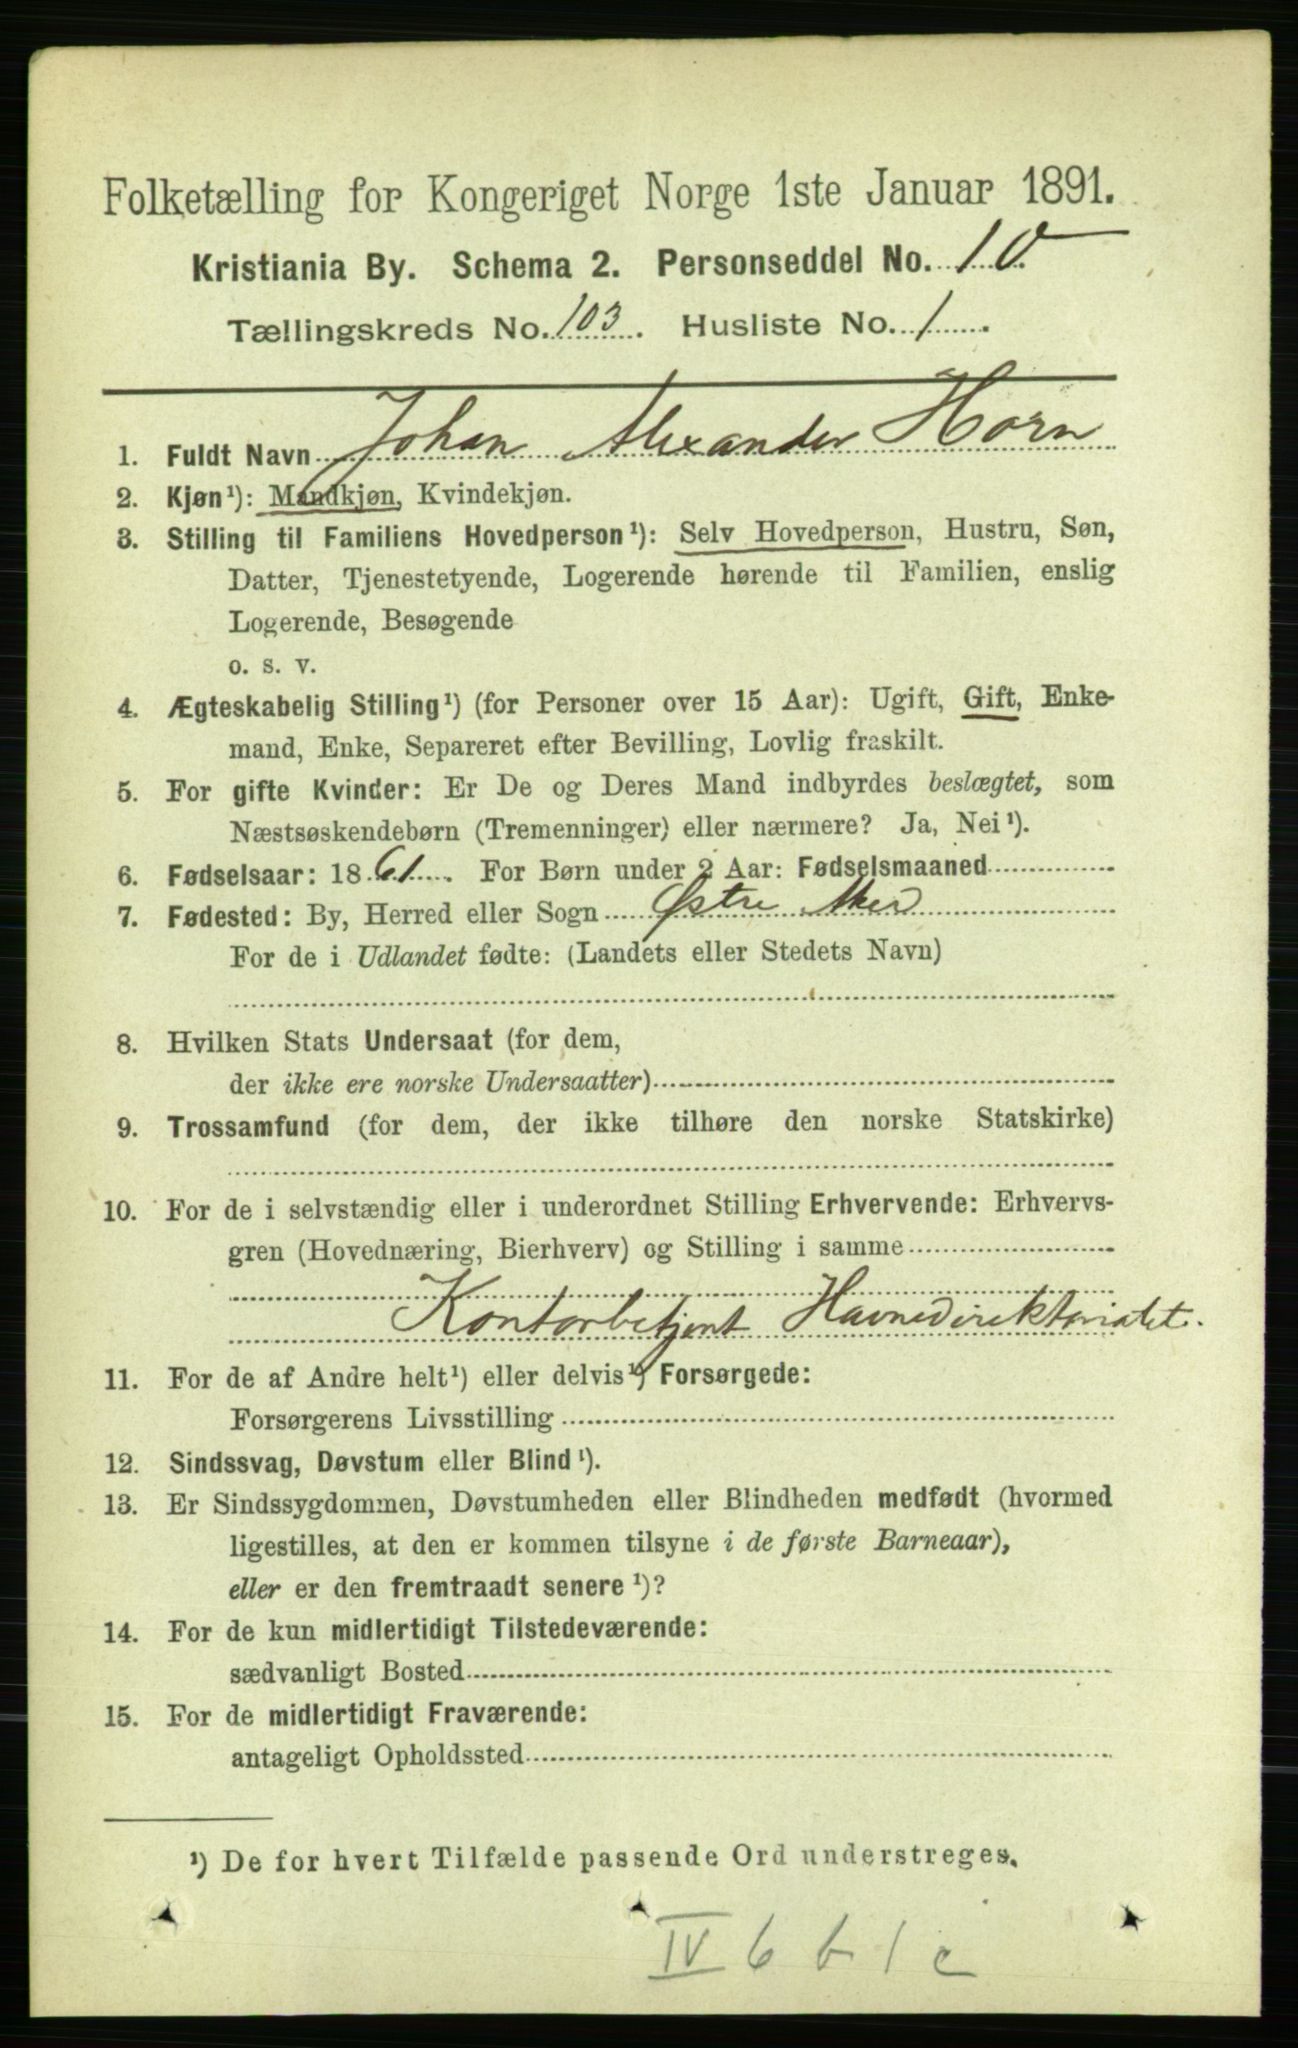 Folketælling for Kongeriget Norge 1ste Januar 1891.
Kristiania By. Schema 2. Personseddel No. 10
Tællingskreds No. 103. Husliste No. 1.
1. Fuldt Navn Johan Alexander Horn
2. Kjøn¹): Mandkjøn, Kvindekjøn.
3. Stilling til Familiens Hovedperson¹): Selv Hovedperson, Hustru, Søn,
Datter, Tjenestetyende, Logerende hørende til Familien, enslig
Logerende, Besøgende
o. s. v.
4. Ægteskabelig Stilling¹) (for Personer over 15 Aar): Ugift, Gift, Enke-
mand, Enke, Separeret efter Bevilling, Lovlig fraskilt.
5. For gifte Kvinder: Er De og Deres Mand indbyrdes beslægtet, som
Næstsøskendebørn (Tremenninger) eller nærmere? Ja, Nei¹).
6. Fødselsaar: 1861. For Børn under 2 Aar: Fødselsmaaned
7. Fødested: By, Herred eller Sogn Østre Aker
For de i Udlandet fødte: (Landets eller Stedets Navn)
8. Hvilken Stats Undersaat (for dem,
der ikke ere norske Undersaatter)
9. Trossamfund (for dem, der ikke tilhøre den norske Statskirke)
10. For de i selvstændig eller i underordnet Stilling Erhvervende: Erhvervs-
gren (Hovednæring, Bierhverv) og Stilling i samme
Kontorbetjent Havnedirektoriatet.
11. For de af Andre helt¹) eller delvis¹) Forsørgede:
Forsørgerens Livsstilling
12. Sindssvag, Døvstum eller Blind¹).
13. Er Sindssygdommen, Døvstumheden eller Blindheden medfødt (hvormed
ligestilles, at den er kommen tilsyne i de første Barneaar),
eller er den fremtraadt senere¹)?
14. For de kun midlertidigt Tilstedeværende:
sædvanligt Bosted
15. For de midlertidigt Fraværende:
antageligt Opholdssted
¹) De for hvert Tilfælde passende Ord understreges.
IV 6 b 1 c